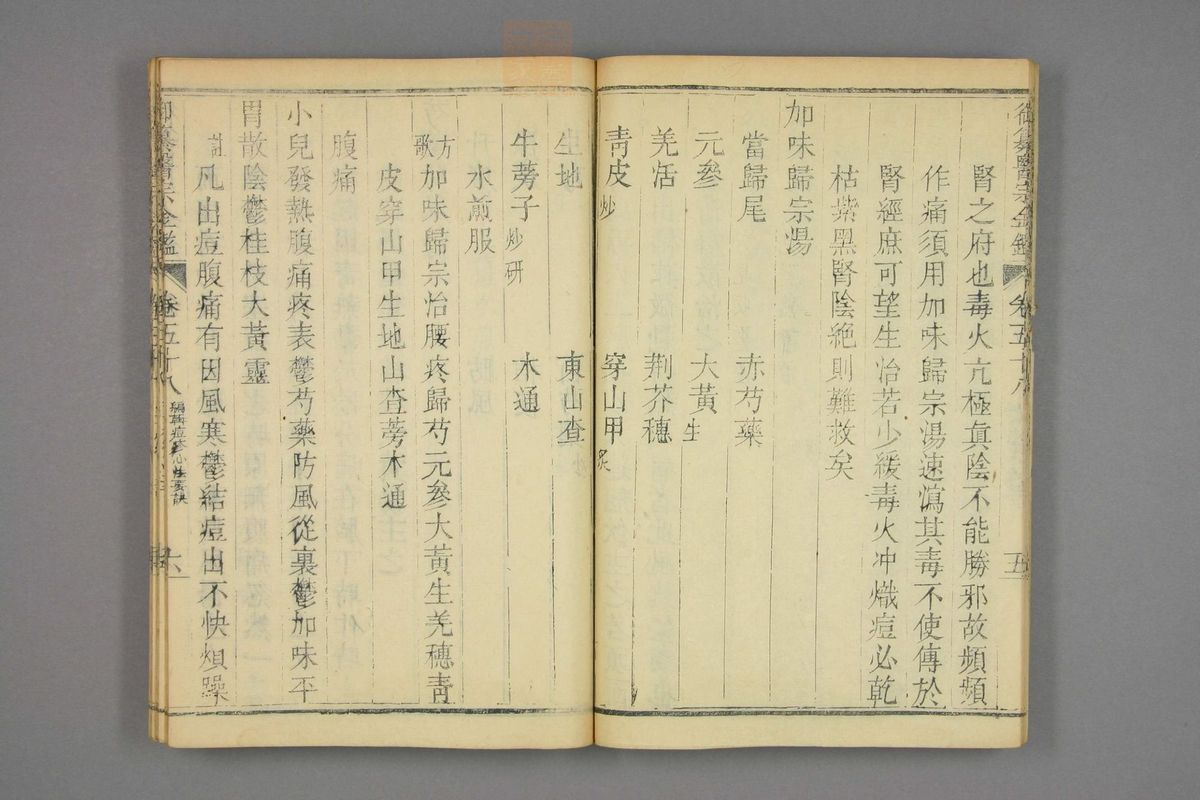 腎之府也毒火亢極真陰不能勝邪故頻頻
作痛須用加味歸宗湯速瀉其毒不使傳於
腎經庶可望生冶若少緩毒火冲熾痘必乾
枯紫黑腎陰絶則難救矣
加味歸宗湯
當歸尾　赤芍藥
元參　大黃生
羌活　荆芥穗
靑皮炒　穿山甲炙
卷五十八
五
生地　東山查
牛蒡子炒研　木通
水煎服
方歌加味歸宗治腰疼歸芍元參大黃生羌穗靑
皮穿山甲生地山查蒡木通
腹痛
小兒發熱腹痛疼表鬱芍藥防風從裏鬱加味平
胃散陰鬱桂枝大黃靈
註凡出痘腹痛有因風寒鬱結痘出不快煩躁
御纂醫宗金鑑　卷五十八　編輯痘疹心法要訣　六